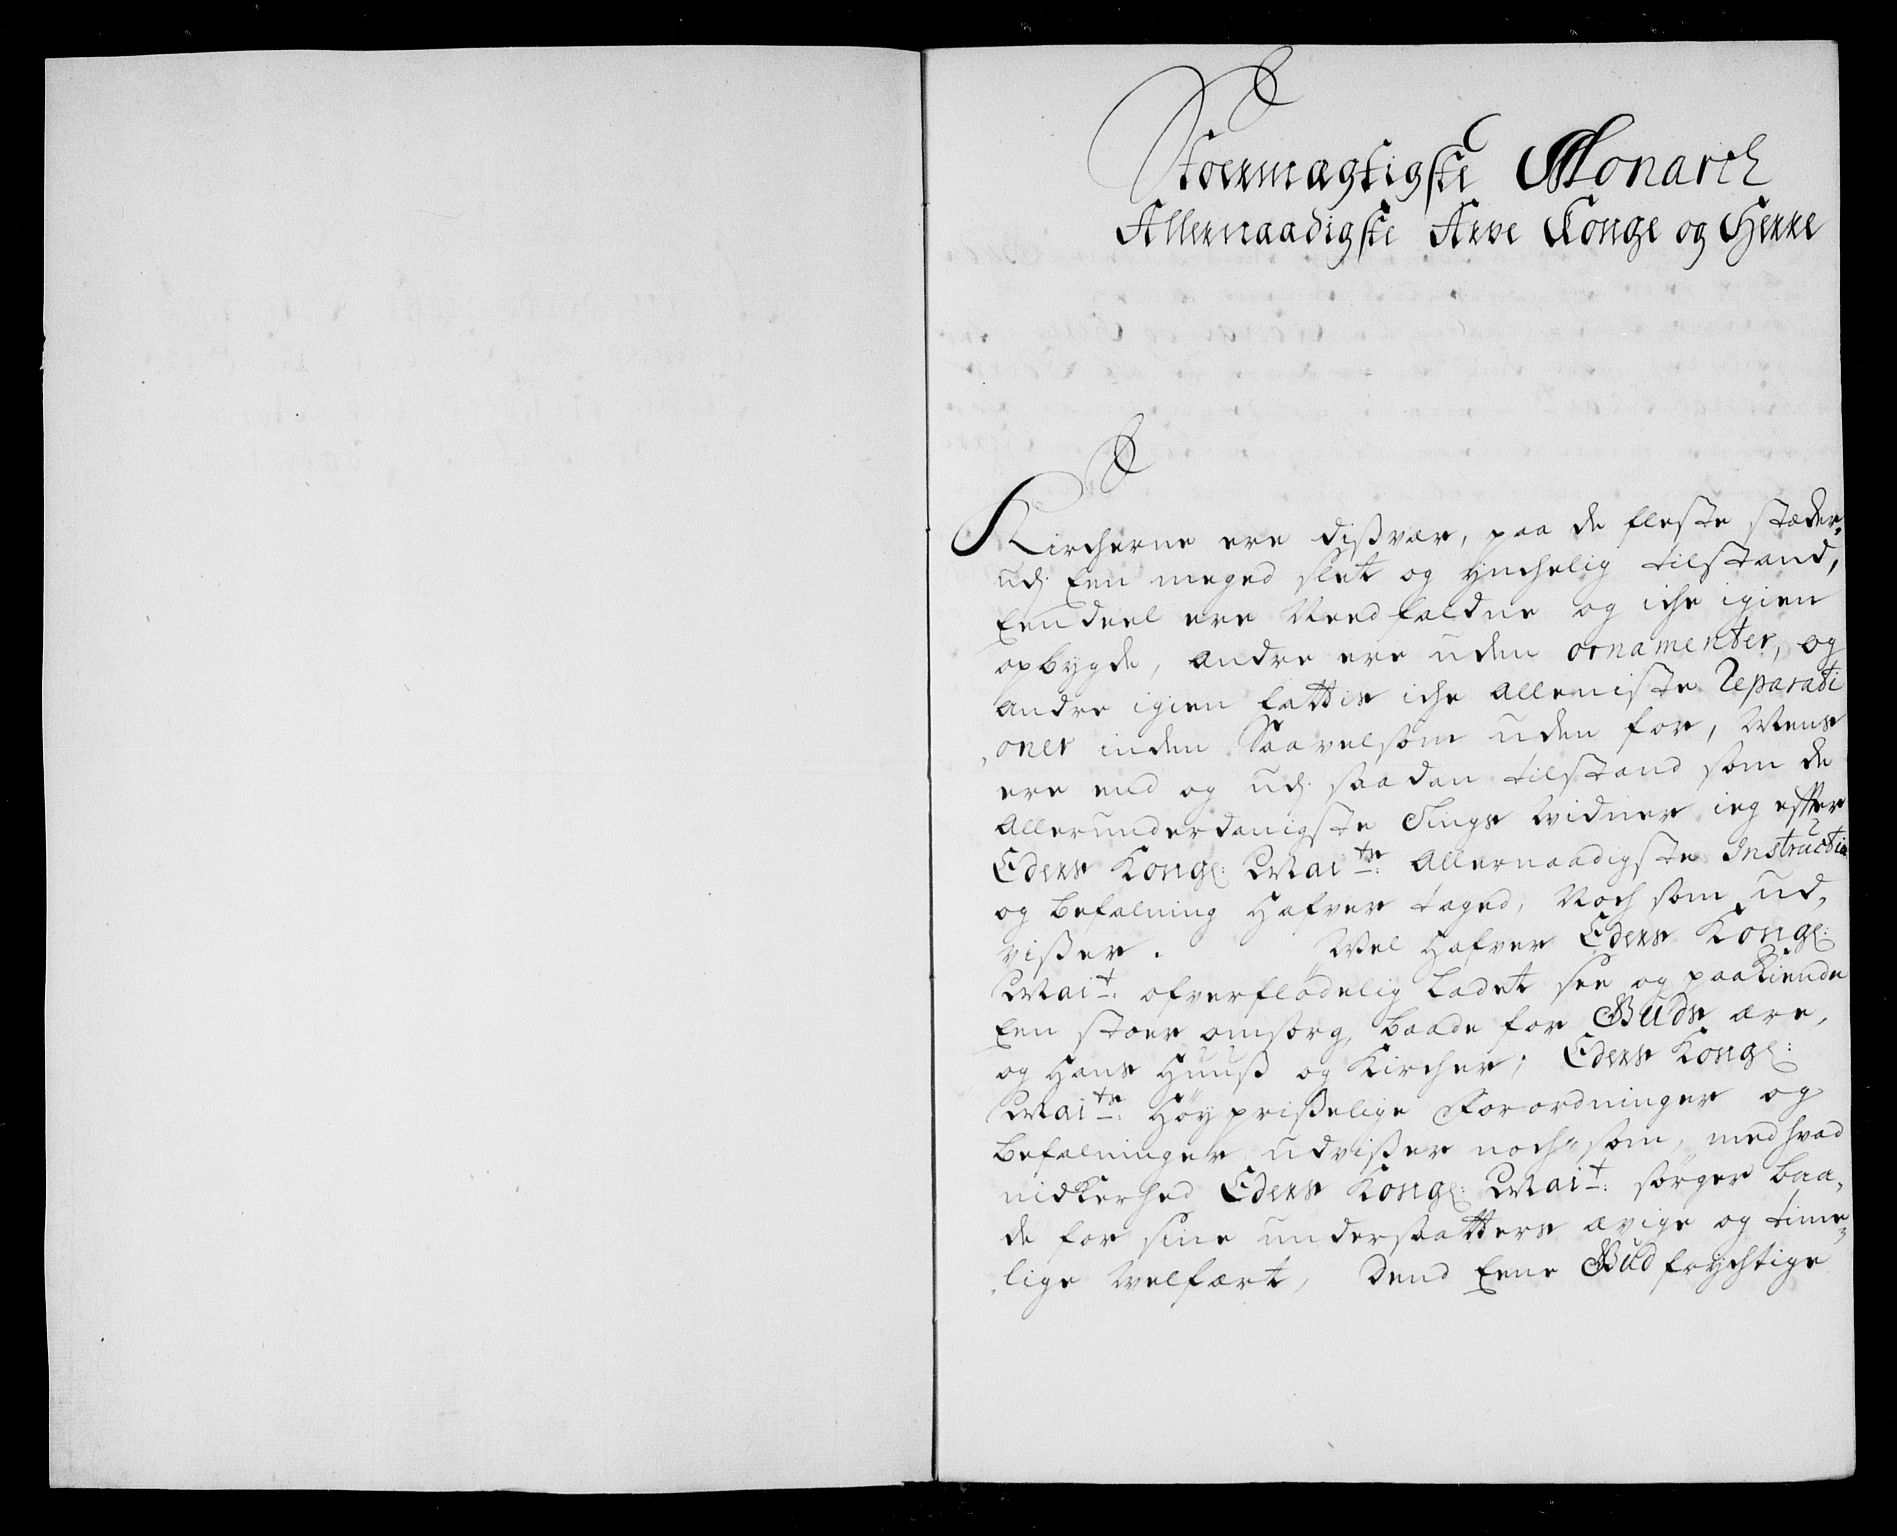 Stoermægtigste Monarch
Allernaadigste Arve Konge og Herre
Kircherne ere dißvær, paa de fleste stæder,
udj Een meged slet og ynchelig tilstand,
Eendeel ere Need faldne og iche igien
opbygde, andre ere uden ornamenter, og
andre igien fattis iche alleniste Reparati
oner inden Saavelsom uden for, Mens
ere end og udj saadan tilstand som de
allerunderdanigste Tings vidner ieg effter
Eders Kongl: Maits: allernaadigste Instructio
og befalning hafver taged, Noch som ud,
vißer. Vel hafver Eders Kongl:
Mait: ofverflödelig ladet see og paakiende
Een stoer omsorg, baade for Guds ære,
og Hans Huuß og Kircher, Eders Kongl:
Maits: Höyprißelige Forordninger og
befalninger udvißer noch som, med hvad
nidkerhed Eders Kongl: Mait: sörger baa,
de for sine undersaatters ævige og time,
lige velfært, Dend Eene Gudfrychtige